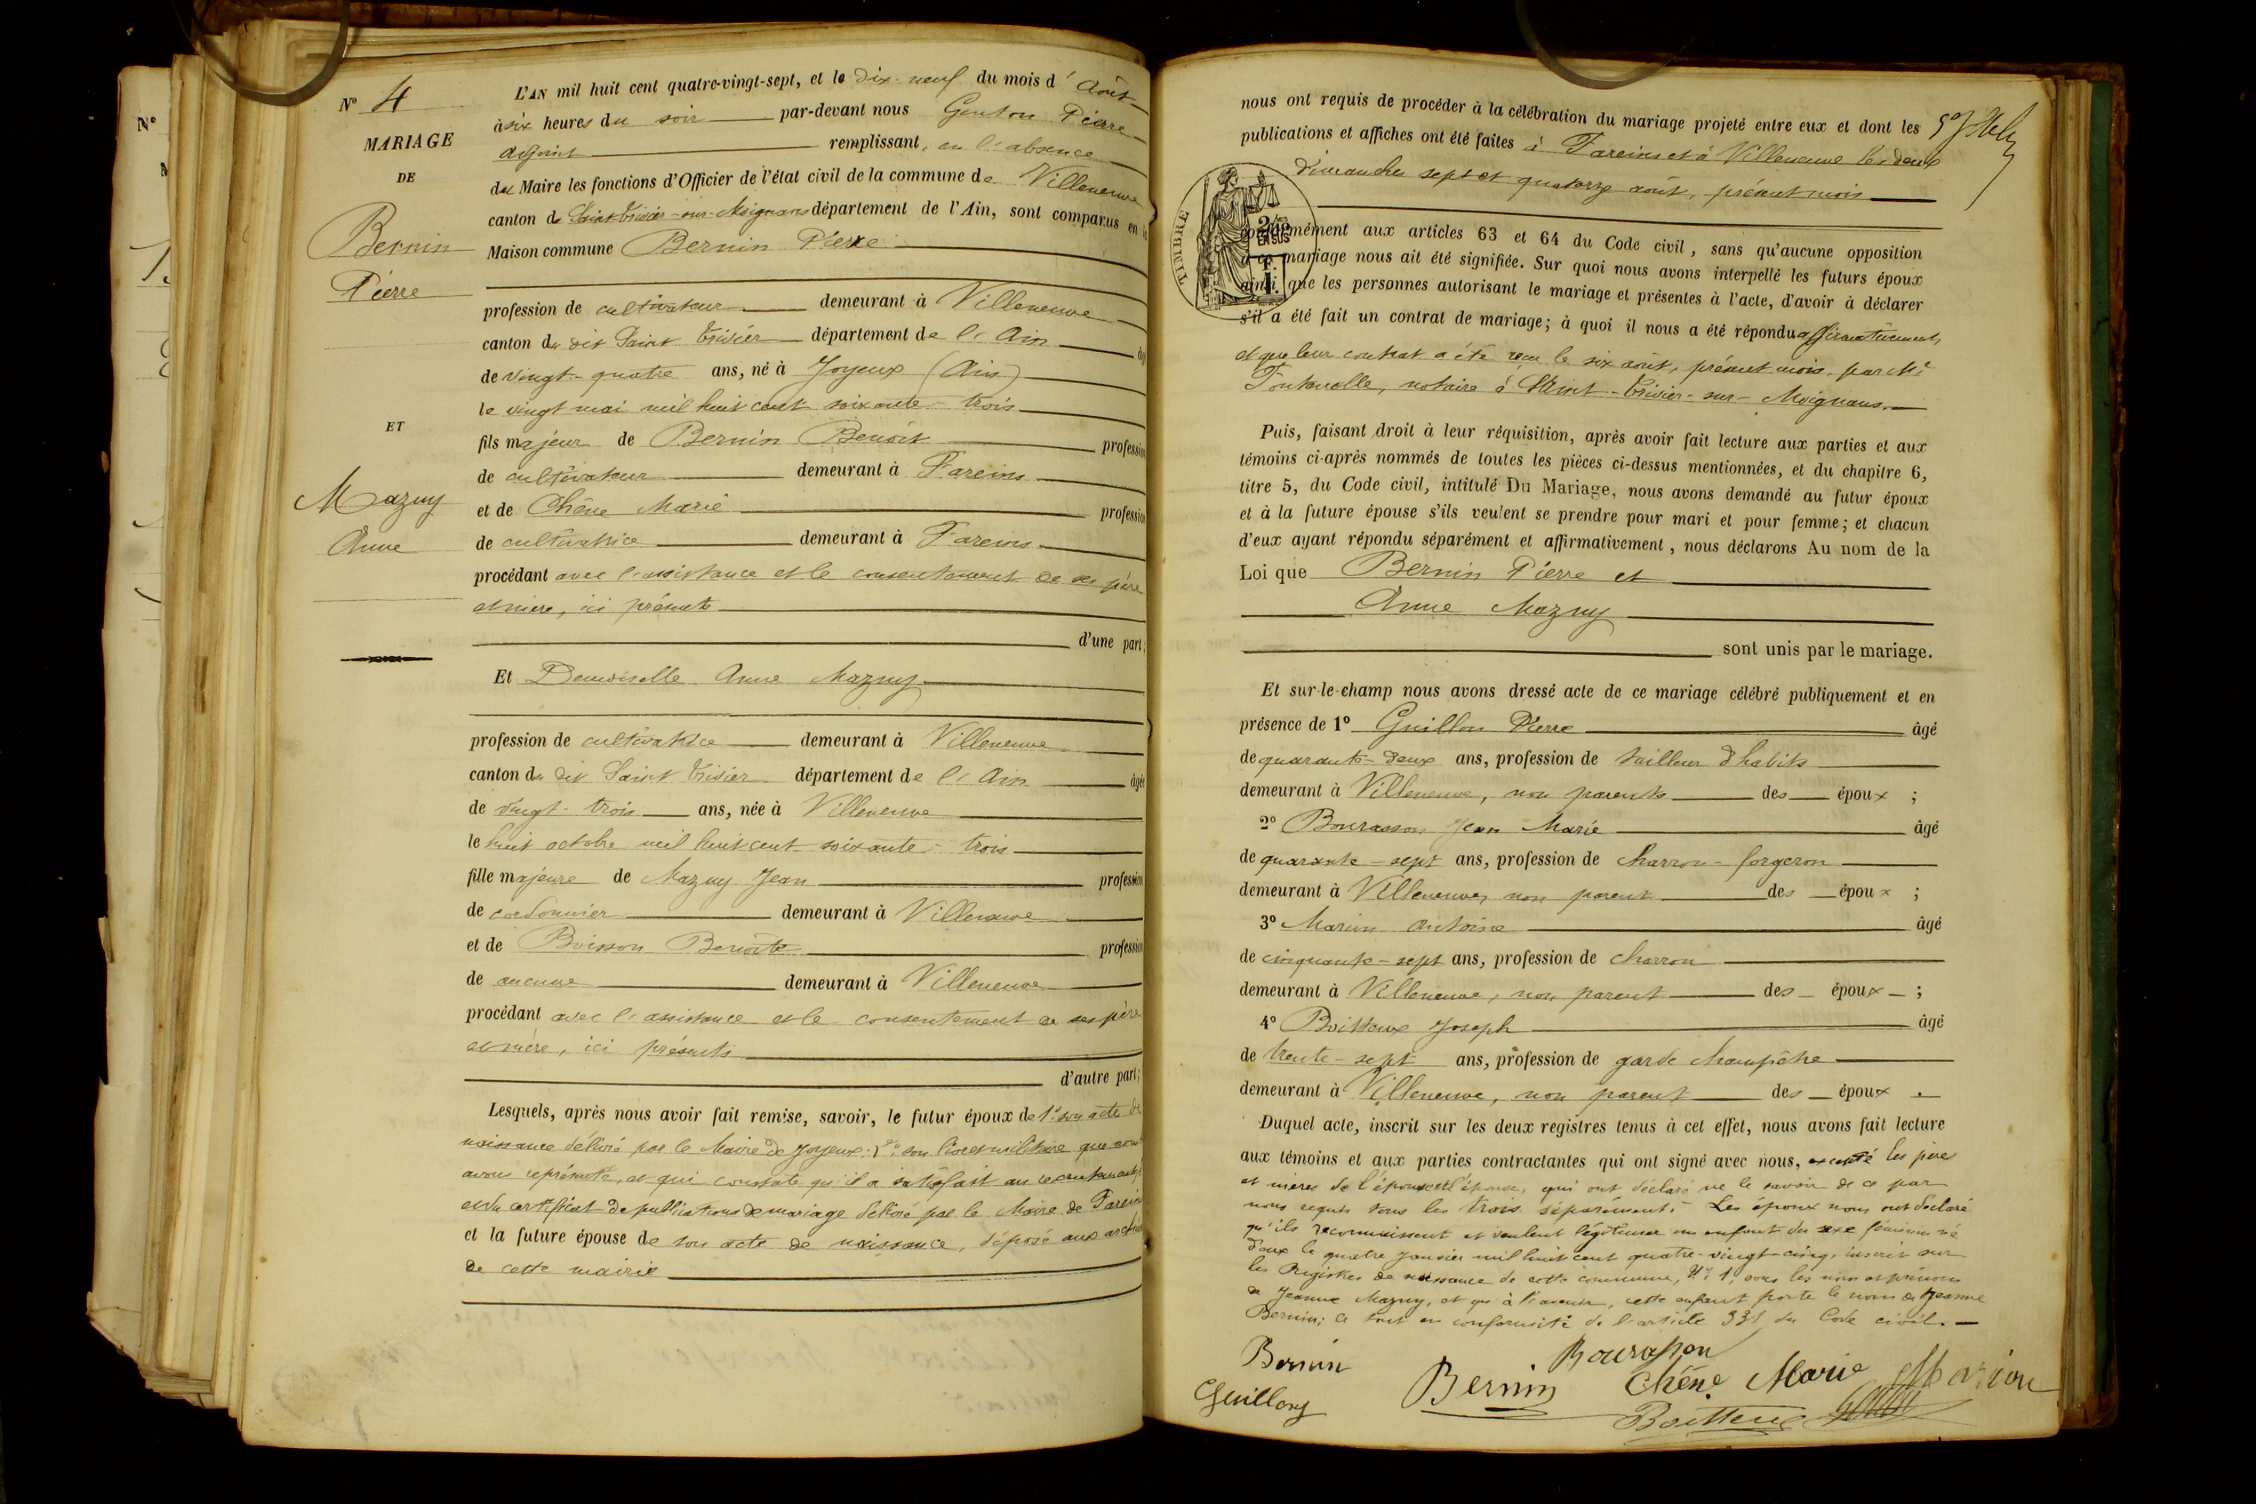 N° 4
MARIAGE
DE
Bernin
Pierre
ET
Mazuy
Anne
L'AN mil huit cent quatre-vingt-sept, et le dix-neuf du mois d'août
à six heures du soir par-devant nous Genton Pierre
adjoint remplissant, en l'absence
du Maire les fonctions d'Officier de l'état civil de la commune de Villeneuve
canton de Saint Trivier-sur-Moignans département de l'Ain, sont comparus en la
Maison commune Bernin Pierre
profession de cultivateur demeurant à Villeneuve
canton du dit Saint Trivier département de l'Ain âgé
de vingt-quatre ans, né à Joyeux (Ain)
le vingt mai mil huit cent soixante-trois
fils majeur de Bernin Benoit profession
de cultivateur demeurant à Fareins
et de Chêne Marie profession
de cultivatrice demeurant à Fareins
procédant avec l'assistance et le consentement de ses père
et mère, ici présents
d'une part;
Et Demoiselle Anne Mazuy
profession de cultivatrice demeurant à Villeneuve
canton du dit Saint Trivier département de l'Ain âgée
de vingt-trois ans, née à Villeneuve
le huit octobre mil huit cent soixante-trois
fille majeure de Mazuy Jean profession
de cordonnier demeurant à Villeneuve
et de Buisson Benoîte profession
de aucune demeurant à Villeneuve
procédant avec l'assistance et le consentement de ses père
et mère, ici présents
d'autre part;
Lesquels, après nous avoir fait remise, savoir, le futur époux de 1° son acte de
naissance délivré par le Maire de Joyeux; 2° son livret militaire que nous
avons représenté, et qui constate qu'il a satisfait au recrutement;
et du certificat de publications de mariage délivré par le Maire de Fareins
et la future épouse de son acte de naissance, déposé aux archives
de cette mairie
nous ont requis de procéder à la célébration du mariage projeté entre eux et dont les
publications et affiches ont été faites à Fareins et à Villeneuve les deux
dimanches sept et quatorze août, présent mois
TIMBRE
2/10
EN SUS
conformément aux articles 63 et 64 du Code civil, sans qu'aucune opposition
à ce mariage nous ait été signifiée. Sur quoi nous avons interpellé les futurs époux
ainsi que les personnes autorisant le mariage et présentes à l'acte, d'avoir à déclarer
s'il a été fait un contrat de mariage; à quoi il nous a été répondu affirmativement,
et que leur contrat a été reçu le six août, présent mois, par Me
Fontanelle, notaire à Saint-Trivier-sur-Moignans.
Puis, faisant droit à leur réquisition, après avoir fait lecture aux parties et aux
témoins ci-après nommés de toutes les pièces ci-dessus mentionnées, et du chapitre 6,
titre 5, du Code civil, intitulé Du Mariage, nous avons demandé au futur époux
et à la future épouse s'ils veulent se prendre pour mari et pour femme; et chacun
d'eux ayant répondu séparément et affirmativement, nous déclarons Au nom de la
Loi que Bernin Pierre et
Anne Mazuy
sont unis par le mariage.
Et sur-le-champ nous avons dressé acte de ce mariage célébré publiquement et en
présence de 1° Guillon Pierre âgé
de quarante-deux ans, profession de tailleur d'habits
demeurant à Villeneuve, non parents des époux ;
2° Bourasson Jean Marie âgé
de quarante-sept ans, profession de charron-forgeron
demeurant à Villeneuve, non parent des époux ;
3° Marion Antoine âgé
de cinquante-sept ans, profession de charron
demeurant à Villeneuve, non parent des époux ;
4° Boitteux Joseph âgé
de trente-sept ans, profession de garde champêtre
demeurant à Villeneuve, non parent des époux .
Duquel acte, inscrit sur les deux registres tenus à cet effet, nous avons fait lecture
aux témoins et aux parties contractantes qui ont signé avec nous, excepté les père
et mère de l'épouse et l'épouse, qui ont déclaré ne le savoir de ce par
nous requis tous les trois séparément. Les époux nous ont déclaré
qu'ils reconnaissent et veulent légitimer un enfant du sexe féminin né
d'eux le quatre janvier mil huit cent quatre-vingt-cinq, inscrit sur
les Registres de naissance de cette commune, N° 1, sous les nom et prénoms
de Jeanne Mazuy, et qu'à l'avenir, cette enfant porte le nom de Jeanne
Bernin; le tout en conformité de l'article 331 du Code civil.
Bernin
Bourasson
Guillon
Bernin
Chêne Marie
Marion
Boitteux